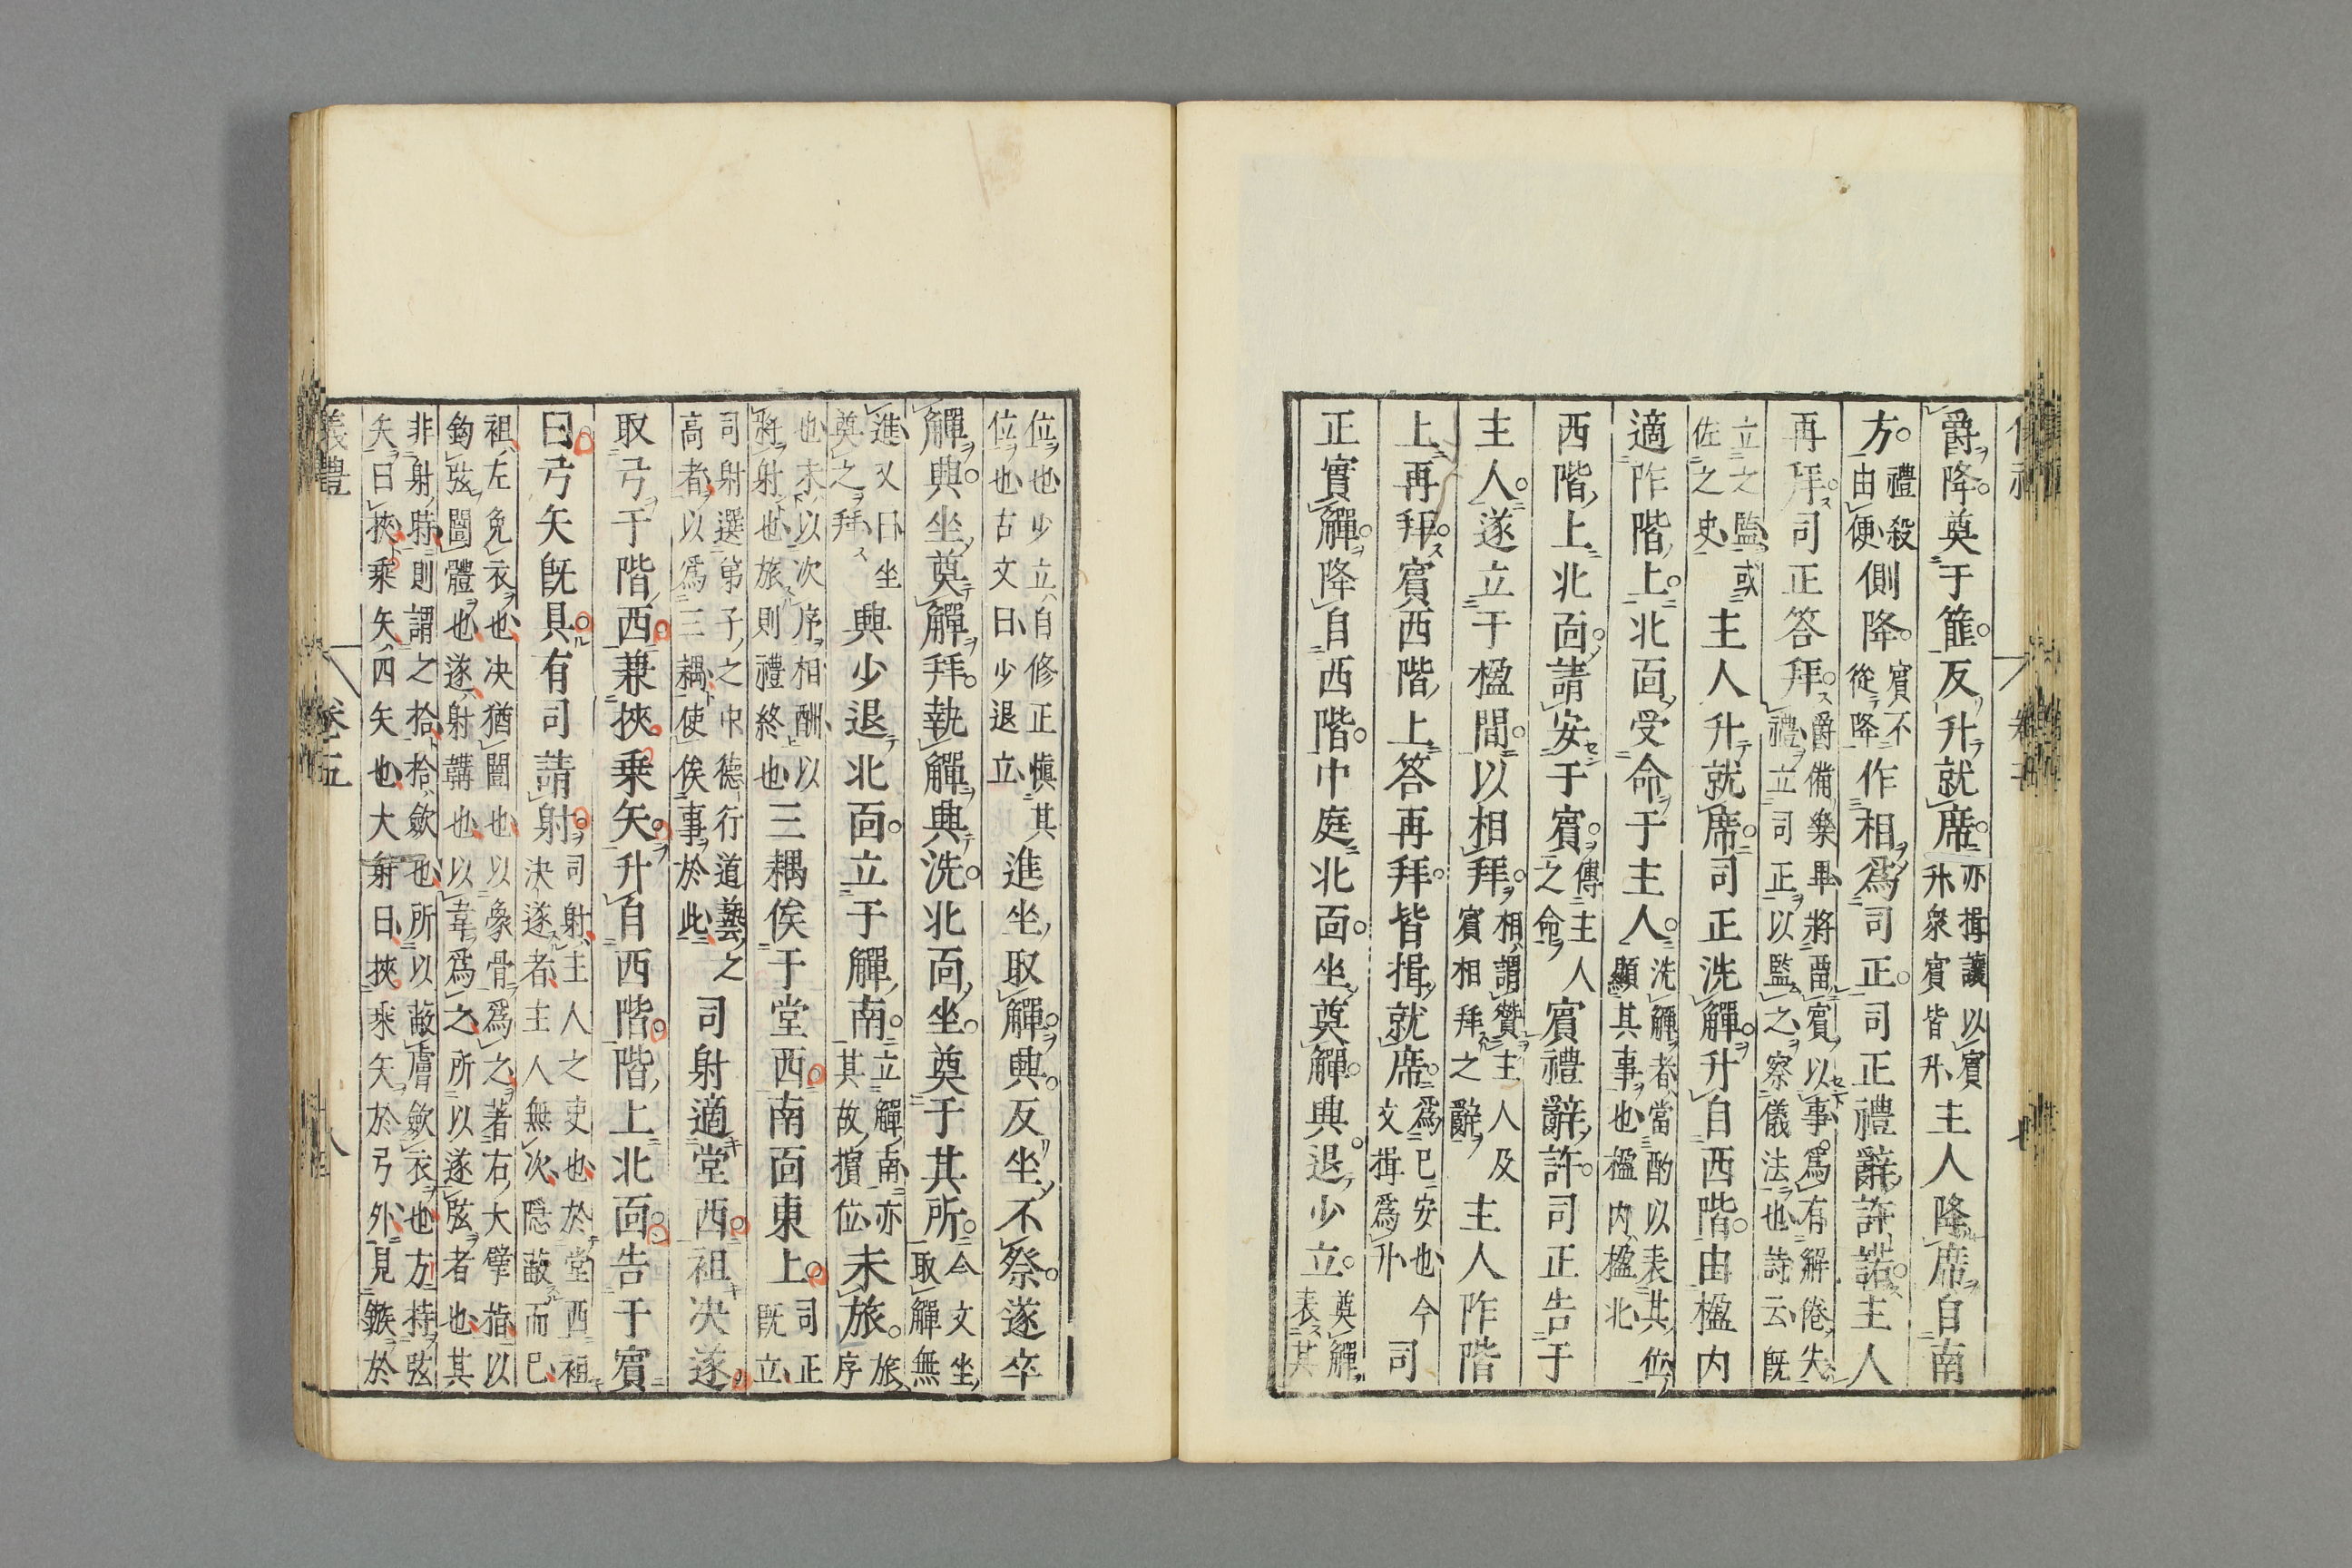 爵降奠于篚反升就席亦揖讓以賓升衆賓皆升主人降席自南
方禮殺由便側降賓不從降作相爲司正司正禮辭許諾主人
再拜司正答拜爵備樂畢將畱賓以事爲有解倦失禮立司正以監之察儀法也詩云旣
立之監或佐之史主人升就席司正洗觶升自西階由楹内
適阼階上北面受命于主人洗觶者當酌以表其位顯其事也楹内楹北
西階上北面請安于賓傳主人之命賓禮辭許司正告于
主人遂立于楹間以相拜相謂贊主人及賓相拜之辭主人阼階
上再拜賓西階上答再拜皆揖就席爲已安也今文揖爲升司
正實觶降自西階中庭北面坐奠觶興退少立奠觶表其
位也少立自修正慎其位也古文曰少退立進坐取觶興反坐不祭遂卒
觶興坐奠觶拜執觶興洗北面坐奠于其所今文坐取觶無
進又曰坐奠之拜興少退北面立于觶南立觶南亦其故擯位未旅旅序
也未以次序相酬以將射也旅則禮終也三耦俟于堂西南面東上司正既立
司射選弟子之中德行道藝之高者以爲三耦使俟事於此司射適堂西袒决遂
取弓于階西兼挾乘矢升自西階階上北面告于賓
曰弓矢既具有司請射司射主人之吏也於堂西袒決遂者主人無次隱蔽而已
袒左免衣也决猶闓也以象骨爲之著右大擘指以鈎弦闓體也遂射韝也以韋爲之所以遂弦者也其
非射時則謂之拾拾歛也所以蔽膚歛衣也方持弦矢曰挾乘矢四矢也大射曰挾乘矢於弓外見鏃於
卷五
八